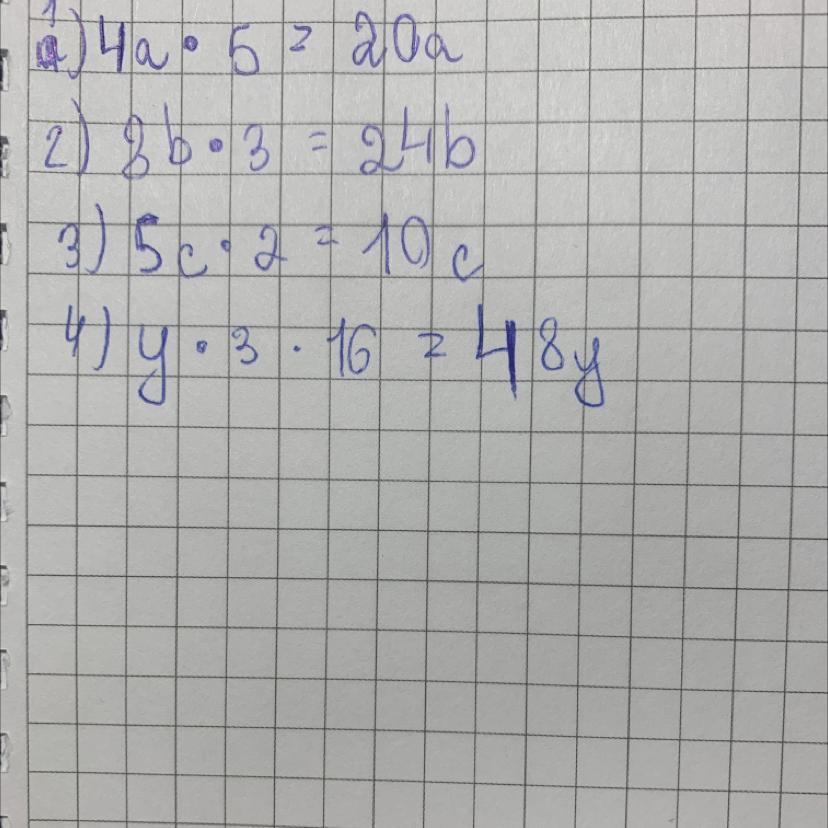 1) 4a · 5 = 20a
2) 8b · 3 = 24b
3) 5c · 2 = 10c
4) y · 3 · 16 = 48y